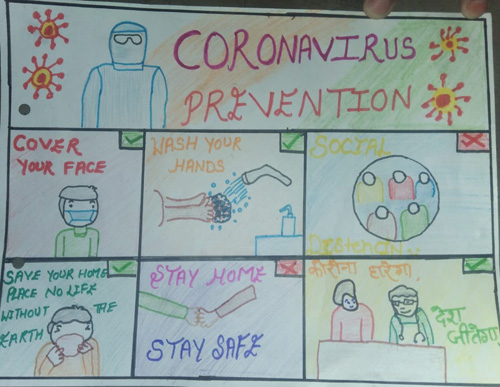 CORONAVIRUS
PREVENTION
COVER
YOUR FACE
WASH YOUR
HANDS
SOCIAL
SAVE YOUR HOME
PLACE NO LIFE
WITHOUT THE
EARTH
STAY HOME
STAY SAFE
कोरोना हारेगा,
देश
जीतेगा